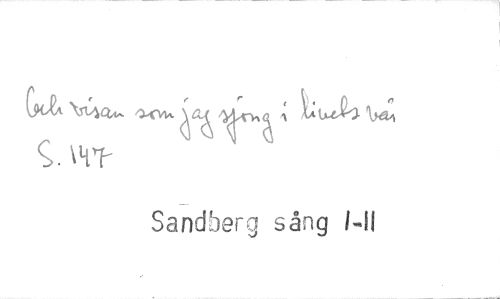 Och visan som jag sjöng i livets vår
S. 147
Sandberg sång I-II